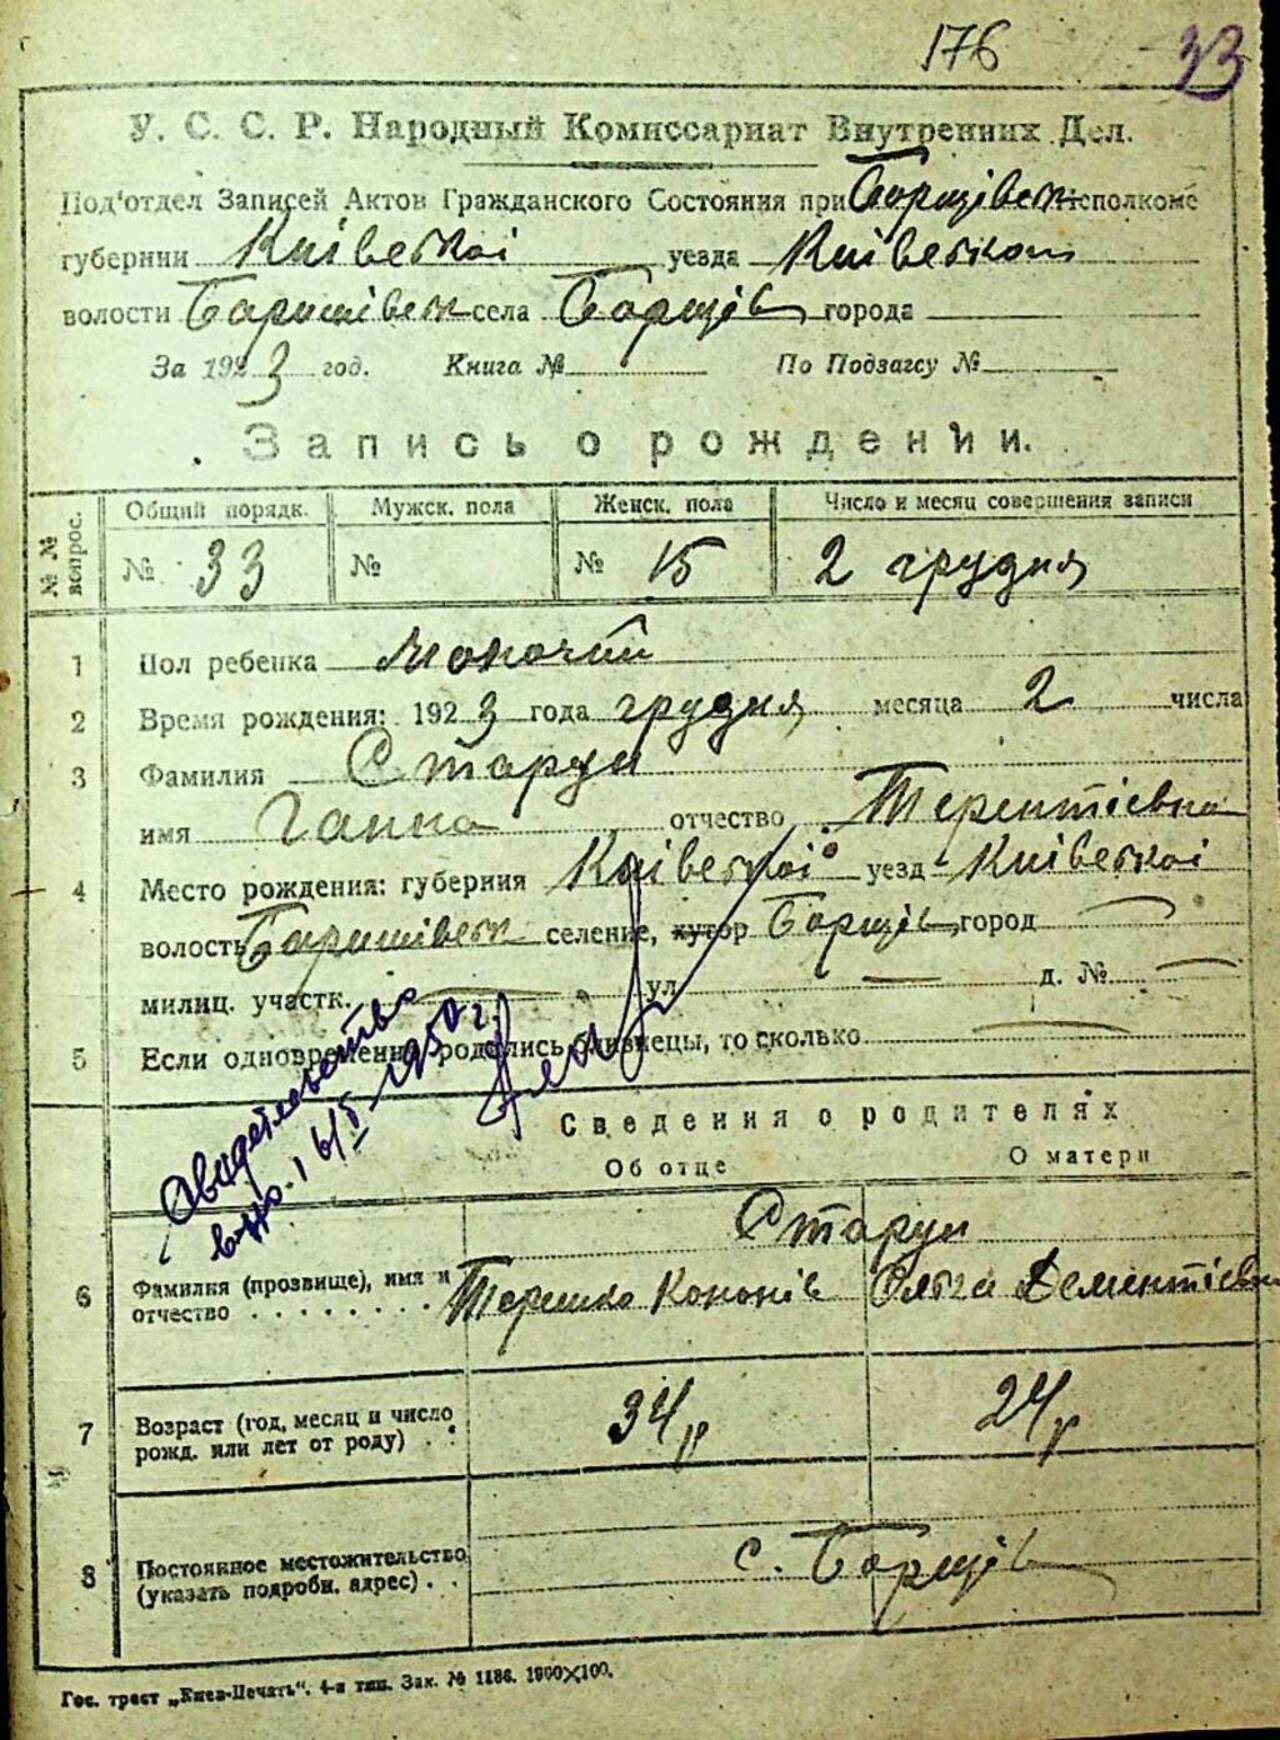 176 33
У. С. С. Р. Народный Комиссариат Внутренних Дел.
Под'отдел Записей Актов Гражданского Состояния при Борщівск исполкоме
губернии Київської уезда Київської
волости Баришівск села Борщів города
За 1923 год. Книга № По Подзагсу №
Запись о рождении.
№№ вопрос. Общий порядк. Мужск. пола Женск. пола Число и месяц совершения записи
№ 33 № № 15 2 грудня
1 Пол ребенка жіночий
2 Время рождения: 1923 года грудня месяца 2 числа
3 Фамилия Старун
имя Ганна отчество Терентіевна
4 Место рождения: губерния Київської уезд Київської
волость Баришівск селение, хутор Борщів город
милиц. участк. ул. д. №
5 Если одновременно родились близнецы, то сколько
Свидетельство
выдо. 16/V-1950 г.
Сведения о родителях
Об отце О матери
Старун
6 Фамилия (прозвище), имя и Терешко Кононів Ольга Дементієвна
отчество . . . . . . . .
7 Возраст (год, месяц и число 34 р 24 р
рожд. или лет от роду) . .
8 Постоянное местожительство с. Борщів
(указать подробн. адрес) . .
Гос. трест „Киев-Печать“. 4-я тип. Зак. № 1186. 1900×100.